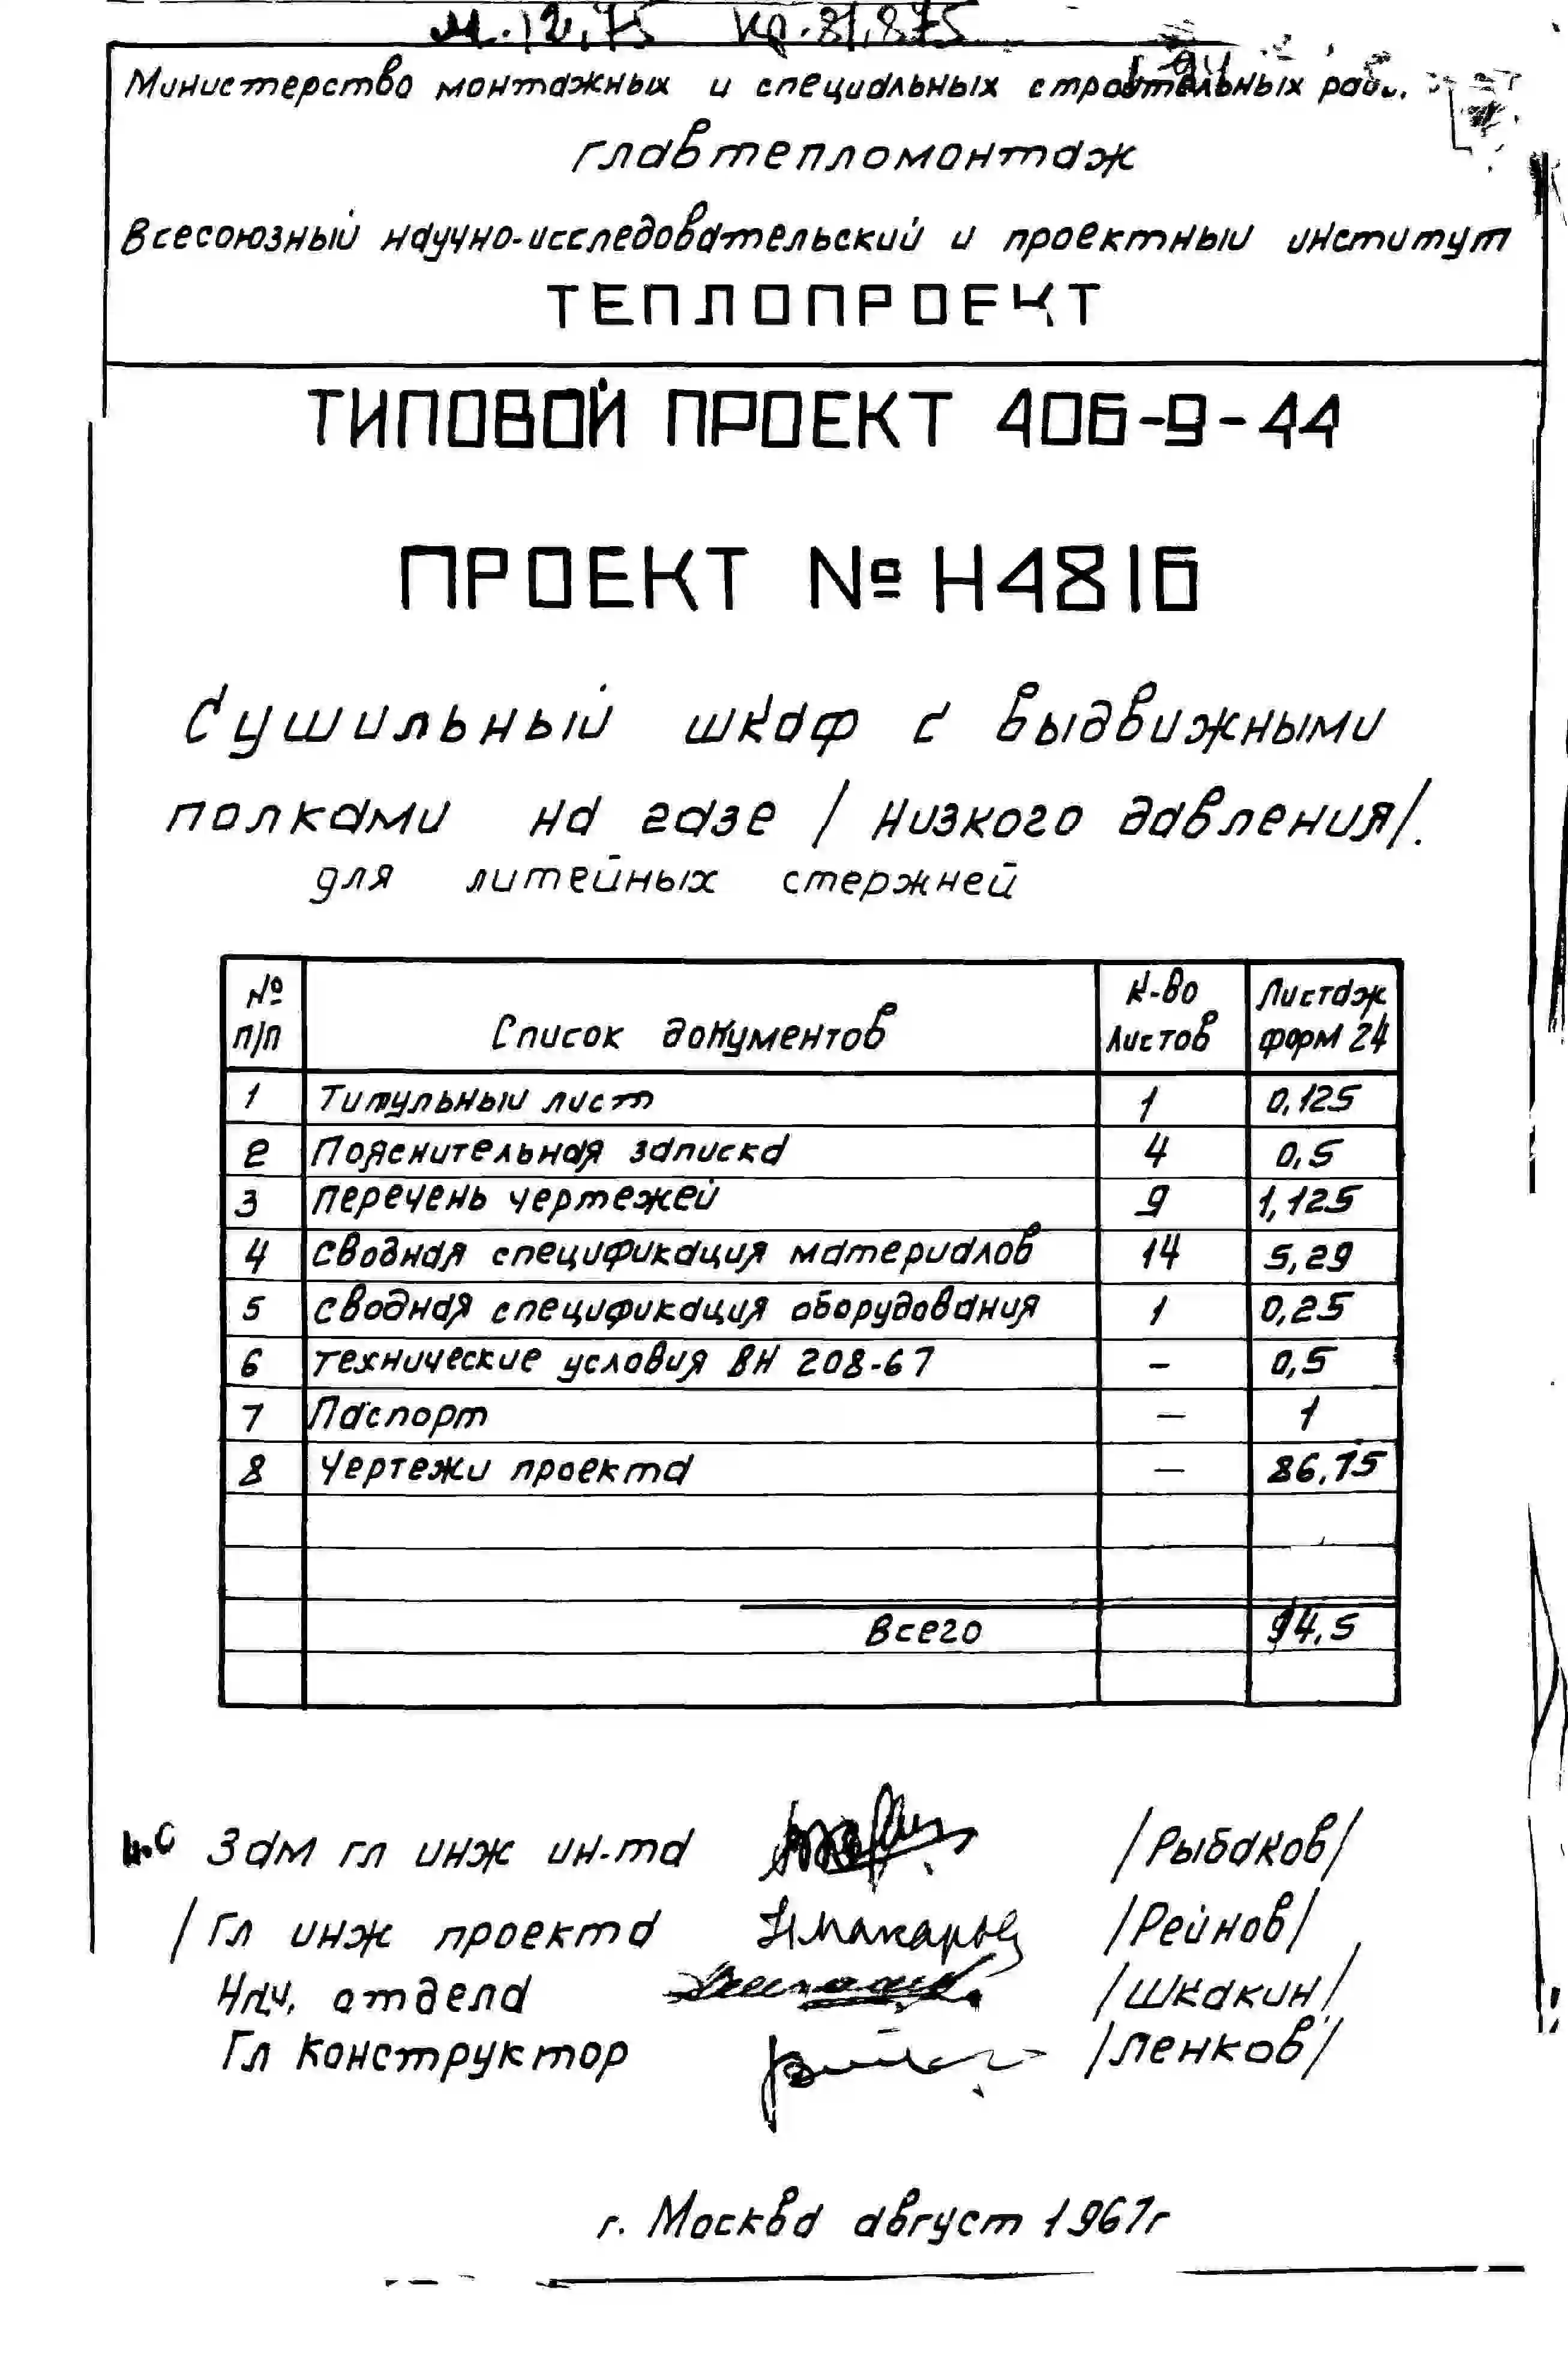 м. 12,75 кр. 81,875
Министерство монтажных и специальных строительных раб
главтепломонтаж
Всесоюзный научно-исследовательский и проектный институт
ТЕПЛОПРОЕКТ
ТИПОВОЙ ПРОЕКТ 406-9-44
ПРОЕКТ № Н4816
Сушильный шкаф с выдвижными
полками на газе /низкого давления/.
для литейных стержней
№ п/п Список документов К-во листов Листаж форм 24
1 Титульный лист 1 0,125
2 Пояснительная записка 4 0,5
3 перечень чертежей 9 1,125
4 сводная спецификация материалов 14 5,29
5 сводная спецификация оборудования 1 0,25
6 технические условия ВН 208-67 – 0,5
7 Паспорт – 1
8 Чертежи проекта – 86,75
Всего 94,5
Зам гл инж ин-та /Рыбаков/
/ Гл инж проекта /Рейнов/
Нач. отдела /Шкакин/
Гл конструктор /Пенков/
г. Москва август 1967г